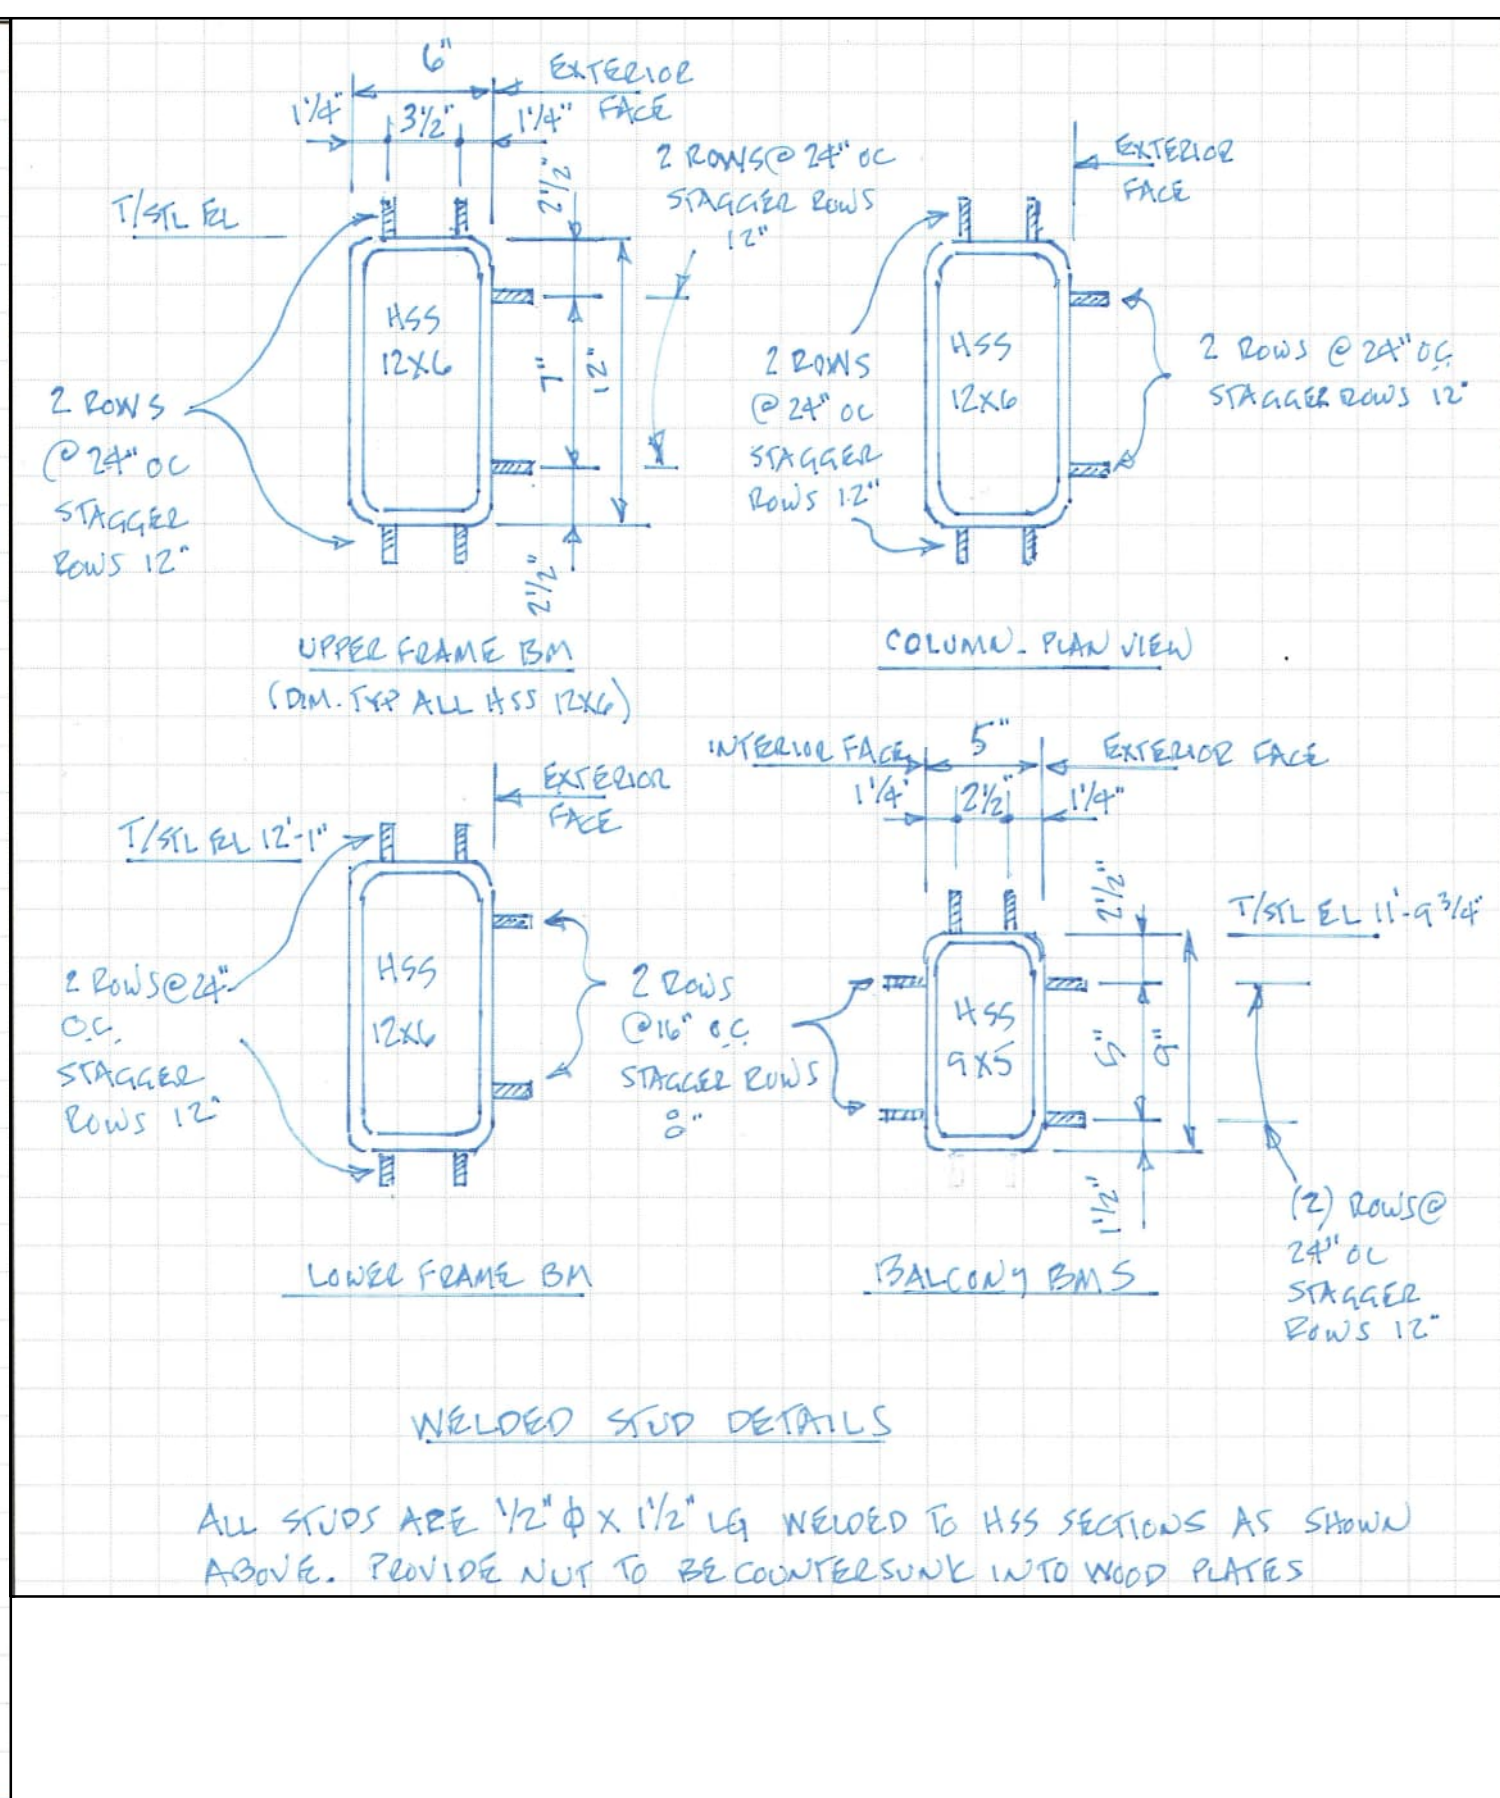 6"
EXTERIOR
FACE
1 1/4"
3 1/2"
1 1/4"
2 1/2"
T/STL EL
2 ROWS @ 24" OC
STAGGER ROWS
12"
HSS
12X6
7"
12"
2 1/2"
2 ROWS
@ 24" OC
STAGGER
ROWS 12"
UPPER FRAME BM
(DIM. TYP ALL HSS 12X6)
EXTERIOR
FACE
HSS
12X6
2 ROWS
@ 24" OC
STAGGER
ROWS 12"
2 ROWS @ 24" O.C.
STAGGER ROWS 12"
COLUMN - PLAN VIEW
EXTERIOR
FACE
T/STL EL 12'-1"
HSS
12X6
2 ROWS @ 24"
O.C.
STAGGER
ROWS 12"
2 ROWS
@ 16" O.C.
STAGGER ROWS
8"
LOWER FRAME BM
INTERIOR FACE
5"
EXTERIOR FACE
1 1/4"
2 1/2"
1 1/4"
2 1/2"
T/STL EL 11'-9 3/4"
HSS
9X5
5"
9"
1 1/2"
(2) ROWS @
24" OC
STAGGER
ROWS 12"
BALCONY BMS
WELDED STUD DETAILS
ALL STUDS ARE 1/2" φ X 1 1/2" LG WELDED TO HSS SECTIONS AS SHOWN
ABOVE. PROVIDE NUT TO BE COUNTERSUNK INTO WOOD PLATES